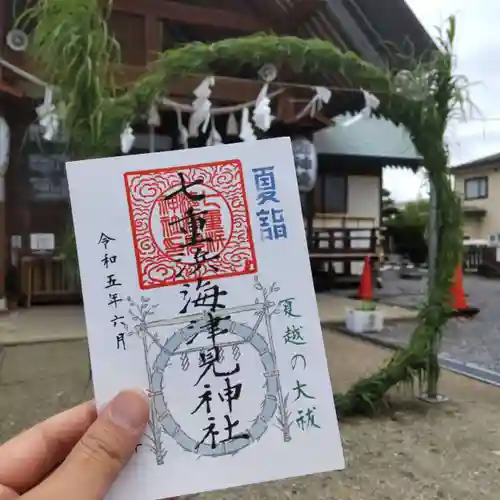 夏詣
七重浜海津見神社
令和五年六月
夏越の大祓